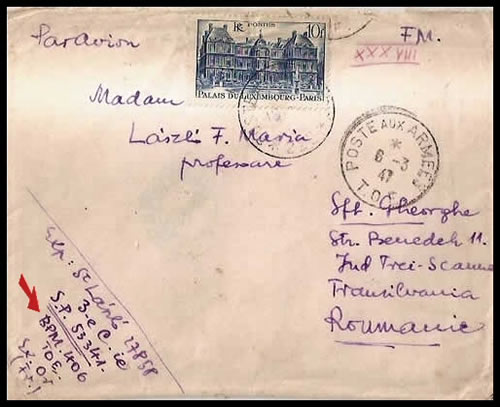 Par Avion
F.M.
XXXVIII
RF
10F
PALAIS DU LUXEMBOURG-PARIS
Madam
László F. Maria
profesoare
POSTE AUX ARMEES
*
6-3
47
T.O.E.
Sft. Gheorghe
Str. Benedek 11.
Jud Trei-Scaune
Transilvania
Roumanie
Exp: St László 27858
3-e C. ie
S.P. 53341.
BPM. 406
TOE.
(Fr.)